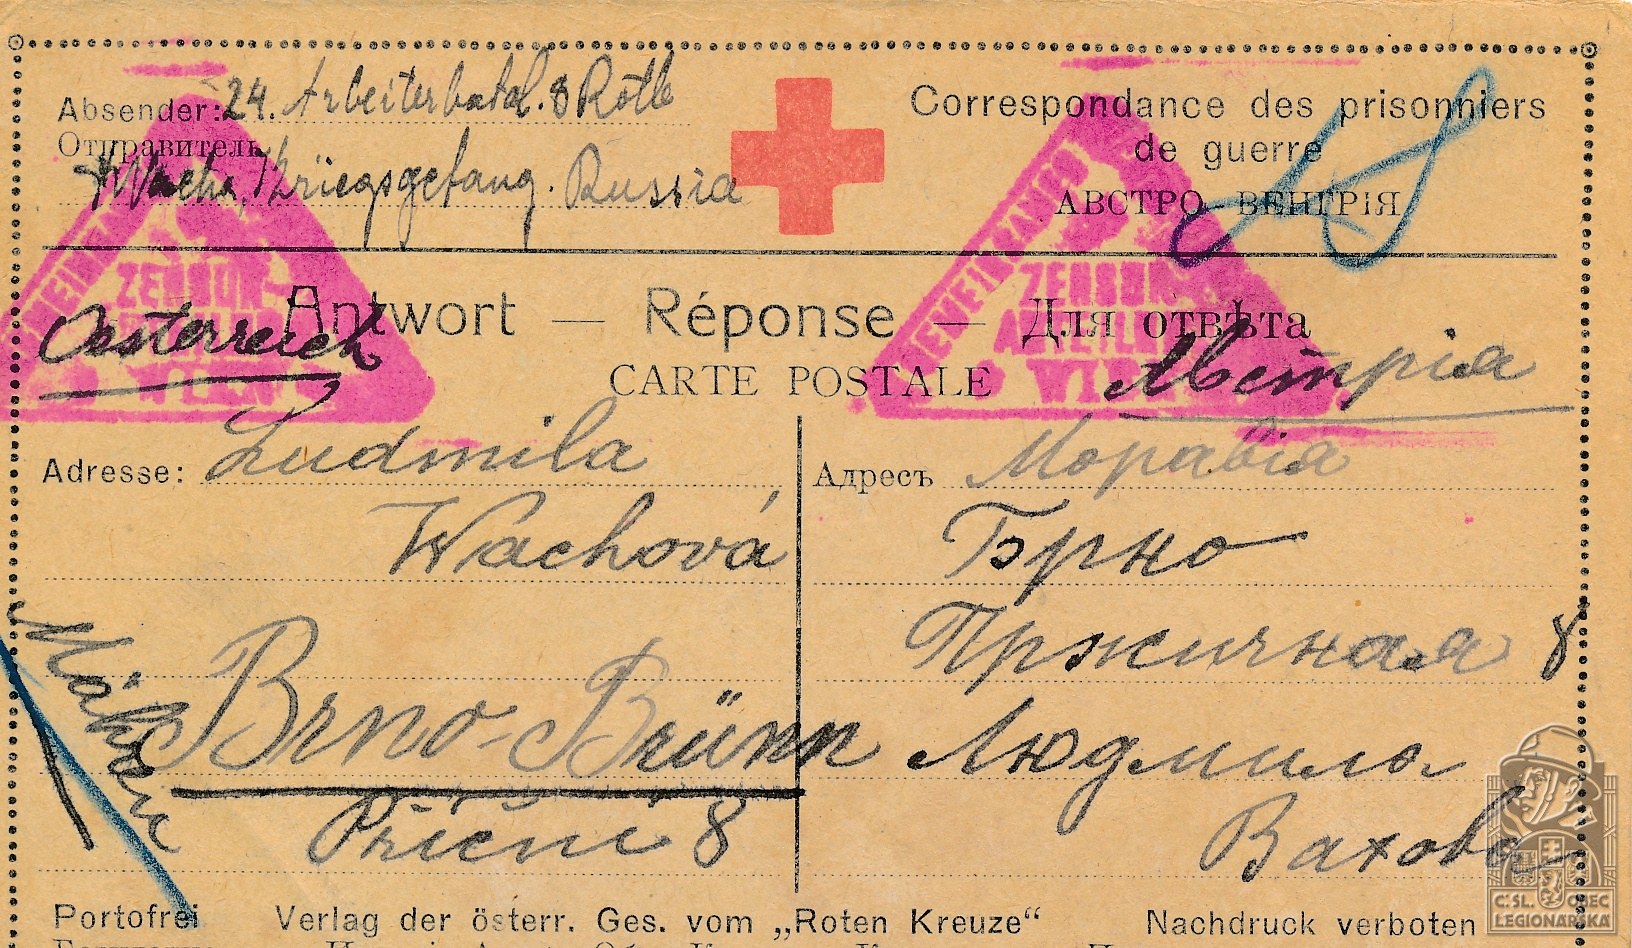 Absender: 24. Arbeiterbatal. 8 Rotte
Отправитель
Wacha, Kriegsgefang. Russia
Correspondance des prisonniers
de guerre
АВСТРО ВЕНГРІЯ
18
Antwort — Réponse — Для отвѣта
CARTE POSTALE
Oesterreich
Австрія
ZENSUR
WIEN
ZENSUR
WIEN
Adresse: Ludmila
Wachová
Mähren
Brno-Brünn
Příční 8
Адресъ Моравія
Брно
Пржичная 8
Людмила
Вахова
Portofrei Verlag der österr. Ges. vom „Roten Kreuze“ Nachdruck verboten
ČSL. OBEC
LEGIONÁŘSKÁ